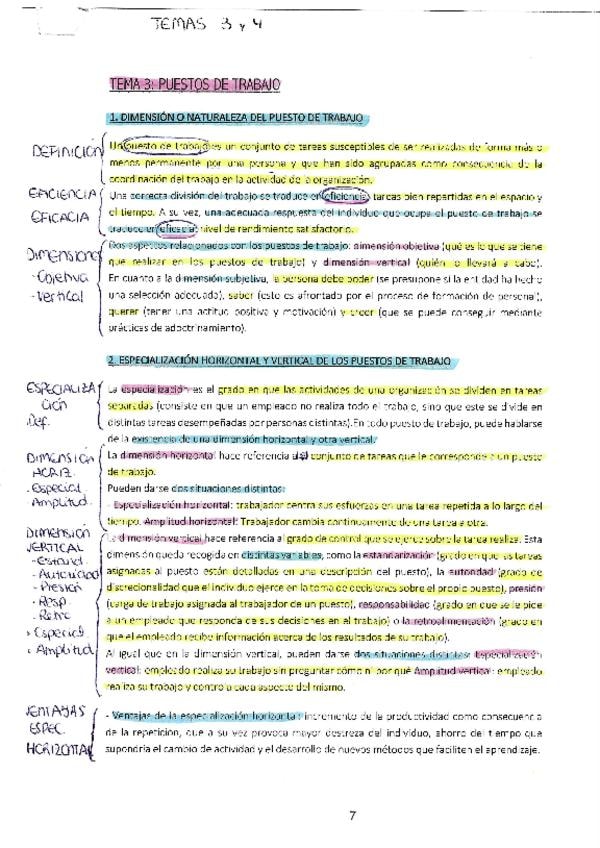 TEMAS 3 y 4
TEMA 3: PUESTOS DE TRABAJO
1. DIMENSIÓN O NATURALEZA DEL PUESTO DE TRABAJO
DEFINICIÓN
Un puesto de trabajo es un conjunto de tareas susceptibles de ser realizadas de forma más o
menos permanente por una persona y que han sido agrupadas como consecuencia de la
coordinación del trabajo en la actividad de la organización.
EFICIENCIA
EFICACIA
Una correcta división del trabajo se traduce en eficiencia, tareas bien repartidas en el espacio y
el tiempo. A su vez, una adecuada respuesta del individuo que ocupa el puesto de trabajo se
traduce en eficacia, nivel de rendimiento satisfactorio.
DIMENSIONES
- Objetiva
- Vertical
Dos aspectos relacionados con los puestos de trabajo: dimensión objetiva (qué es lo que se tiene
que realizar en los puestos de trabajo) y dimensión vertical (quién lo llevará a cabo).
En cuanto a la dimensión subjetiva, la persona debe poder (se presupone si la entidad ha hecho
una selección adecuada), saber (esto es afrontado por el proceso de formación de personal),
querer (tener una actitud positiva y motivación) y creer (que se puede conseguir mediante
prácticas de adoctrinamiento).
2. ESPECIALIZACIÓN HORIZONTAL Y VERTICAL DE LOS PUESTOS DE TRABAJO
ESPECIALIZA
CIÓN
Def.
La especialización es el grado en que las actividades de una organización se dividen en tareas
separadas (consiste en que un empleado no realiza todo el trabajo, sino que este se divide en
distintas tareas desempeñadas por personas distintas). En todo puesto de trabajo, puede hablarse
de la existencia de una dimensión horizontal y otra vertical.
DIMENSIÓN
HORIZ.
- Especial.
Amplitud.
La dimensión horizontal hace referencia al conjunto de tareas que le corresponde a un puesto
de trabajo.
Pueden darse dos situaciones distintas:
- Especialización horizontal: trabajador centra sus esfuerzos en una tarea repetida a lo largo del
tiempo. Amplitud horizontal: Trabajador cambia continuamente de una tarea a otra.
DIMENSIÓN
VERTICAL
- Estand.
- Autoridad
- Presión
- Resp.
- Retro
· Especial.
· Amplitud.
La dimensión vertical hace referencia al grado de control que se ejerce sobre la tarea realiza. Esta
dimensión queda recogida en distintas variables, como la estandarización (grado en que las tareas
asignadas al puesto están detalladas en una descripción del puesto), la autoridad (grado de
discrecionalidad que el individuo ejerce en la toma de decisiones sobre el propio puesto), presión
(carga de trabajo asignada al trabajador de un puesto), responsabilidad (grado en que se le pide
a un empleado que responda de sus decisiones en el trabajo) o la retroalimentación (grado en
que el empleado recibe información acerca de los resultados de su trabajo).
Al igual que en la dimensión vertical, pueden darse dos situaciones distintas: Especialización
vertical: empleado realiza su trabajo sin preguntar cómo ni por qué Amplitud vertical: empleado
realiza su trabajo y control a cada aspecto del mismo.
VENTAJAS
ESPEC.
HORIZONTAL
- Ventajas de la especialización horizontal: incremento de la productividad como consecuencia
de la repetición, que a su vez provoca mayor destreza del individuo, ahorro del tiempo que
supondría el cambio de actividad y el desarrollo de nuevos métodos que faciliten el aprendizaje.
7